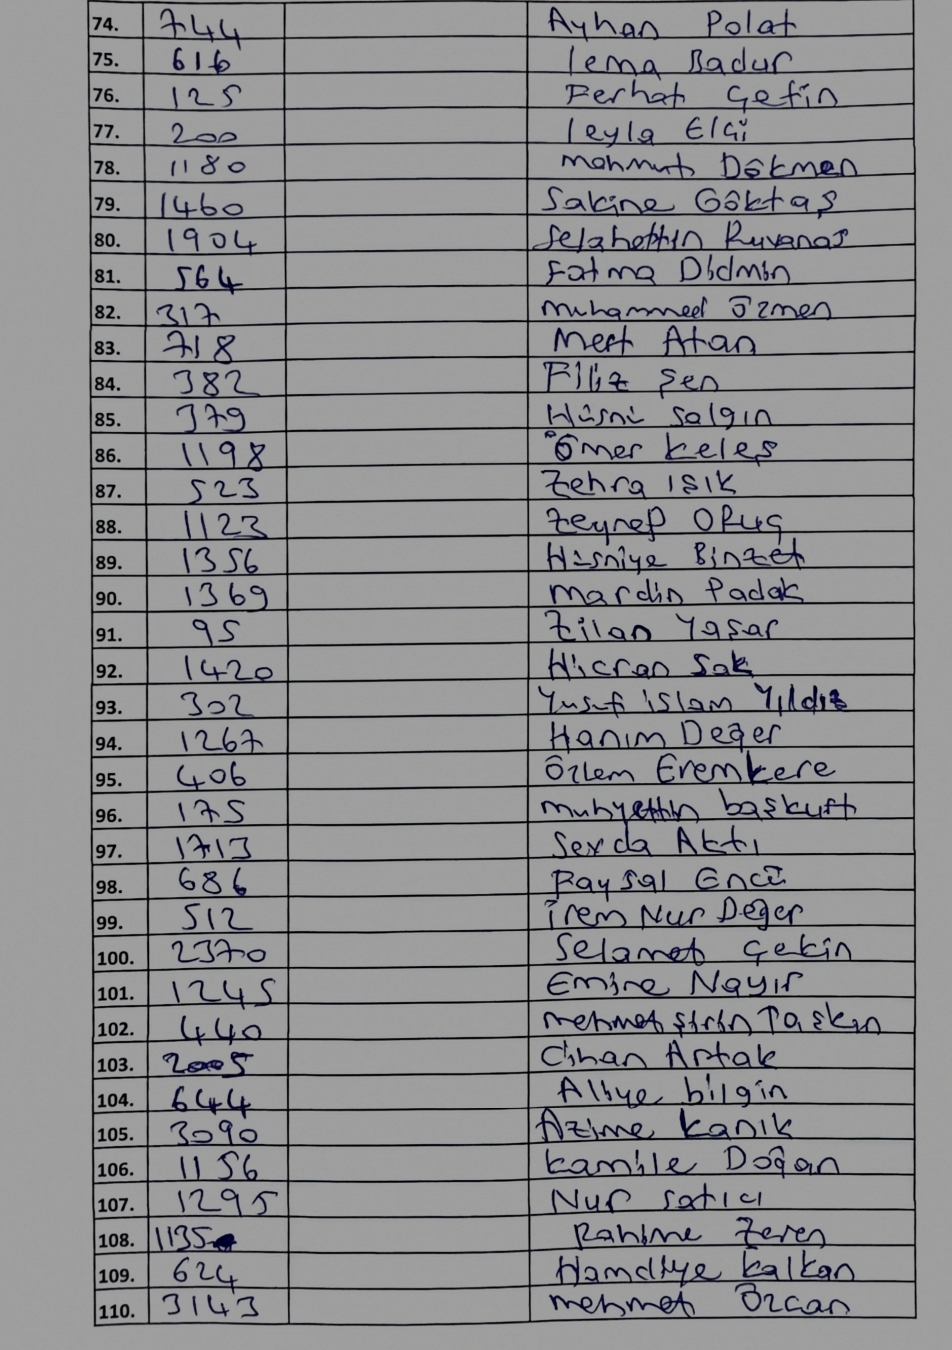 74. 744 Ayhan Polat
75. 616 lema Badur
76. 125 Ferhat Çetin
77. 200 leyla Elçi
78. 1180 mahmut Dökmen
79. 1460 Sakine Göktaş
80. 1904 Selahettin Ruvanas
81. 564 Fatma Didmin
82. 317 muhammed Özmen
83. 718 Mert Atan
84. 382 Filiz Şen
85. 379 Hüsnü Salgın
86. 1198 Ömer keleş
87. 523 Zehra IŞIK
88. 1123 Zeynep ORUÇ
89. 1356 Hüsniye Binzet
90. 1369 mardin Padak
91. 95 Zilan Yaşar
92. 1420 Hicran Sak
93. 302 Yusuf islam Yıldız
94. 1267 Hanım Değer
95. 406 Özlem Eremkere
96. 175 muhyettin başkurt
97. 1713 Serda Aktı
98. 686 Faysal Encü
99. 512 irem Nur Değer
100. 2370 Selamet Çekin
101. 1245 Emine Nayır
102. 440 mehmet Şirin Taşkın
103. 2005 Cihan Artak
104. 644 Aliye bilgin
105. 3090 Azime kanık
106. 1156 kamile Doğan
107. 1295 Nur satıcı
108. 1135 Rahime Zeren
109. 624 Hamdiye kalkan
110. 3143 mehmet Özcan